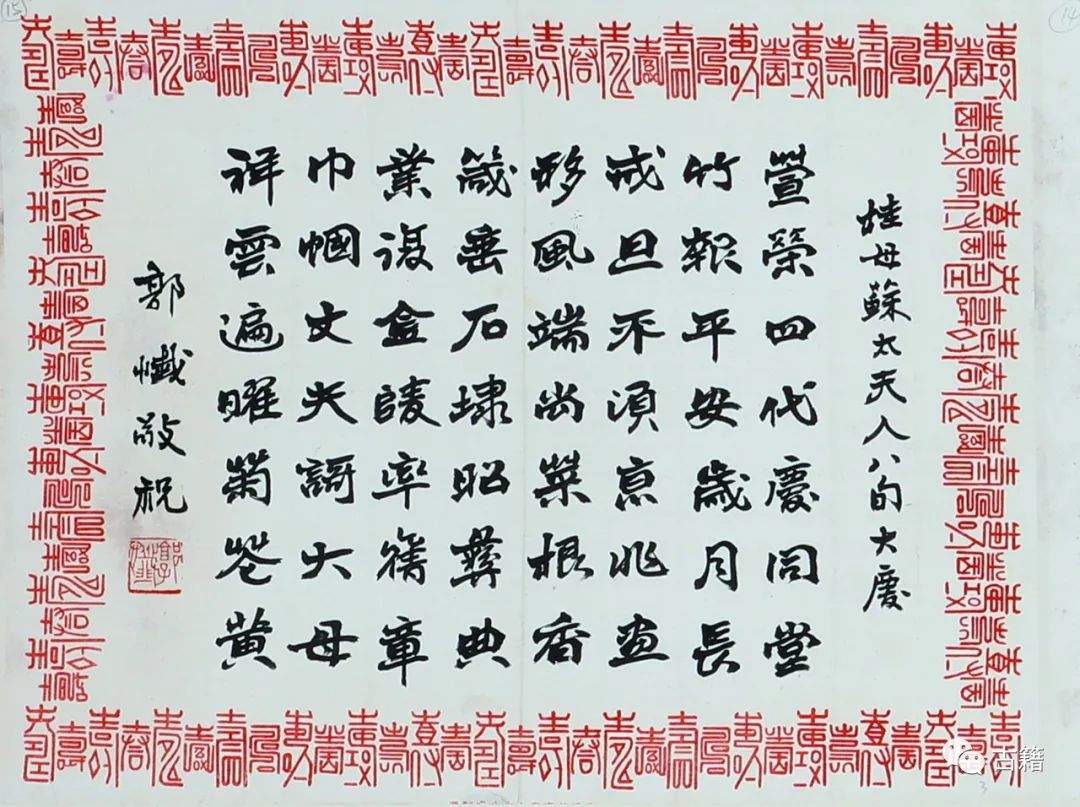 桂母蘇太夫人八旬大慶
萱榮四代慶同堂
竹報平安歲月長
戒旦不須京兆畫
移風端尚菜根香
箴垂石埭昭彝典
業金陵率舊章
巾幗丈夫謌大母
祥雲遍曜菊花黃
郭懺敬祝
15
14
古籍